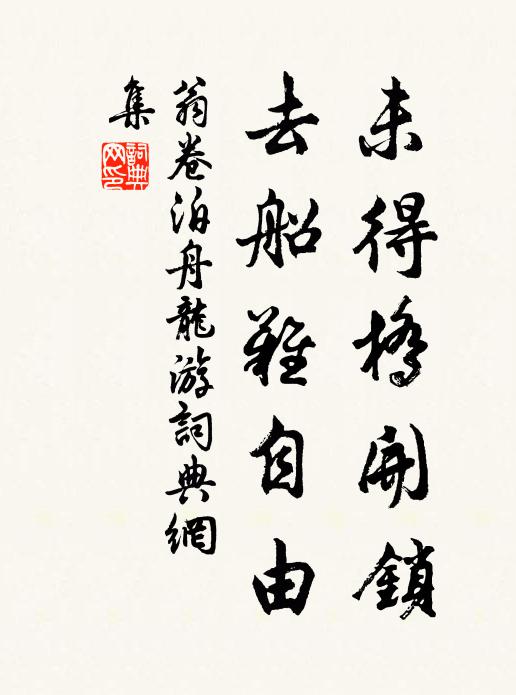 未得橋開鎖
去船難自由
翁卷泊舟龍游詞典網
集
詞典
网印